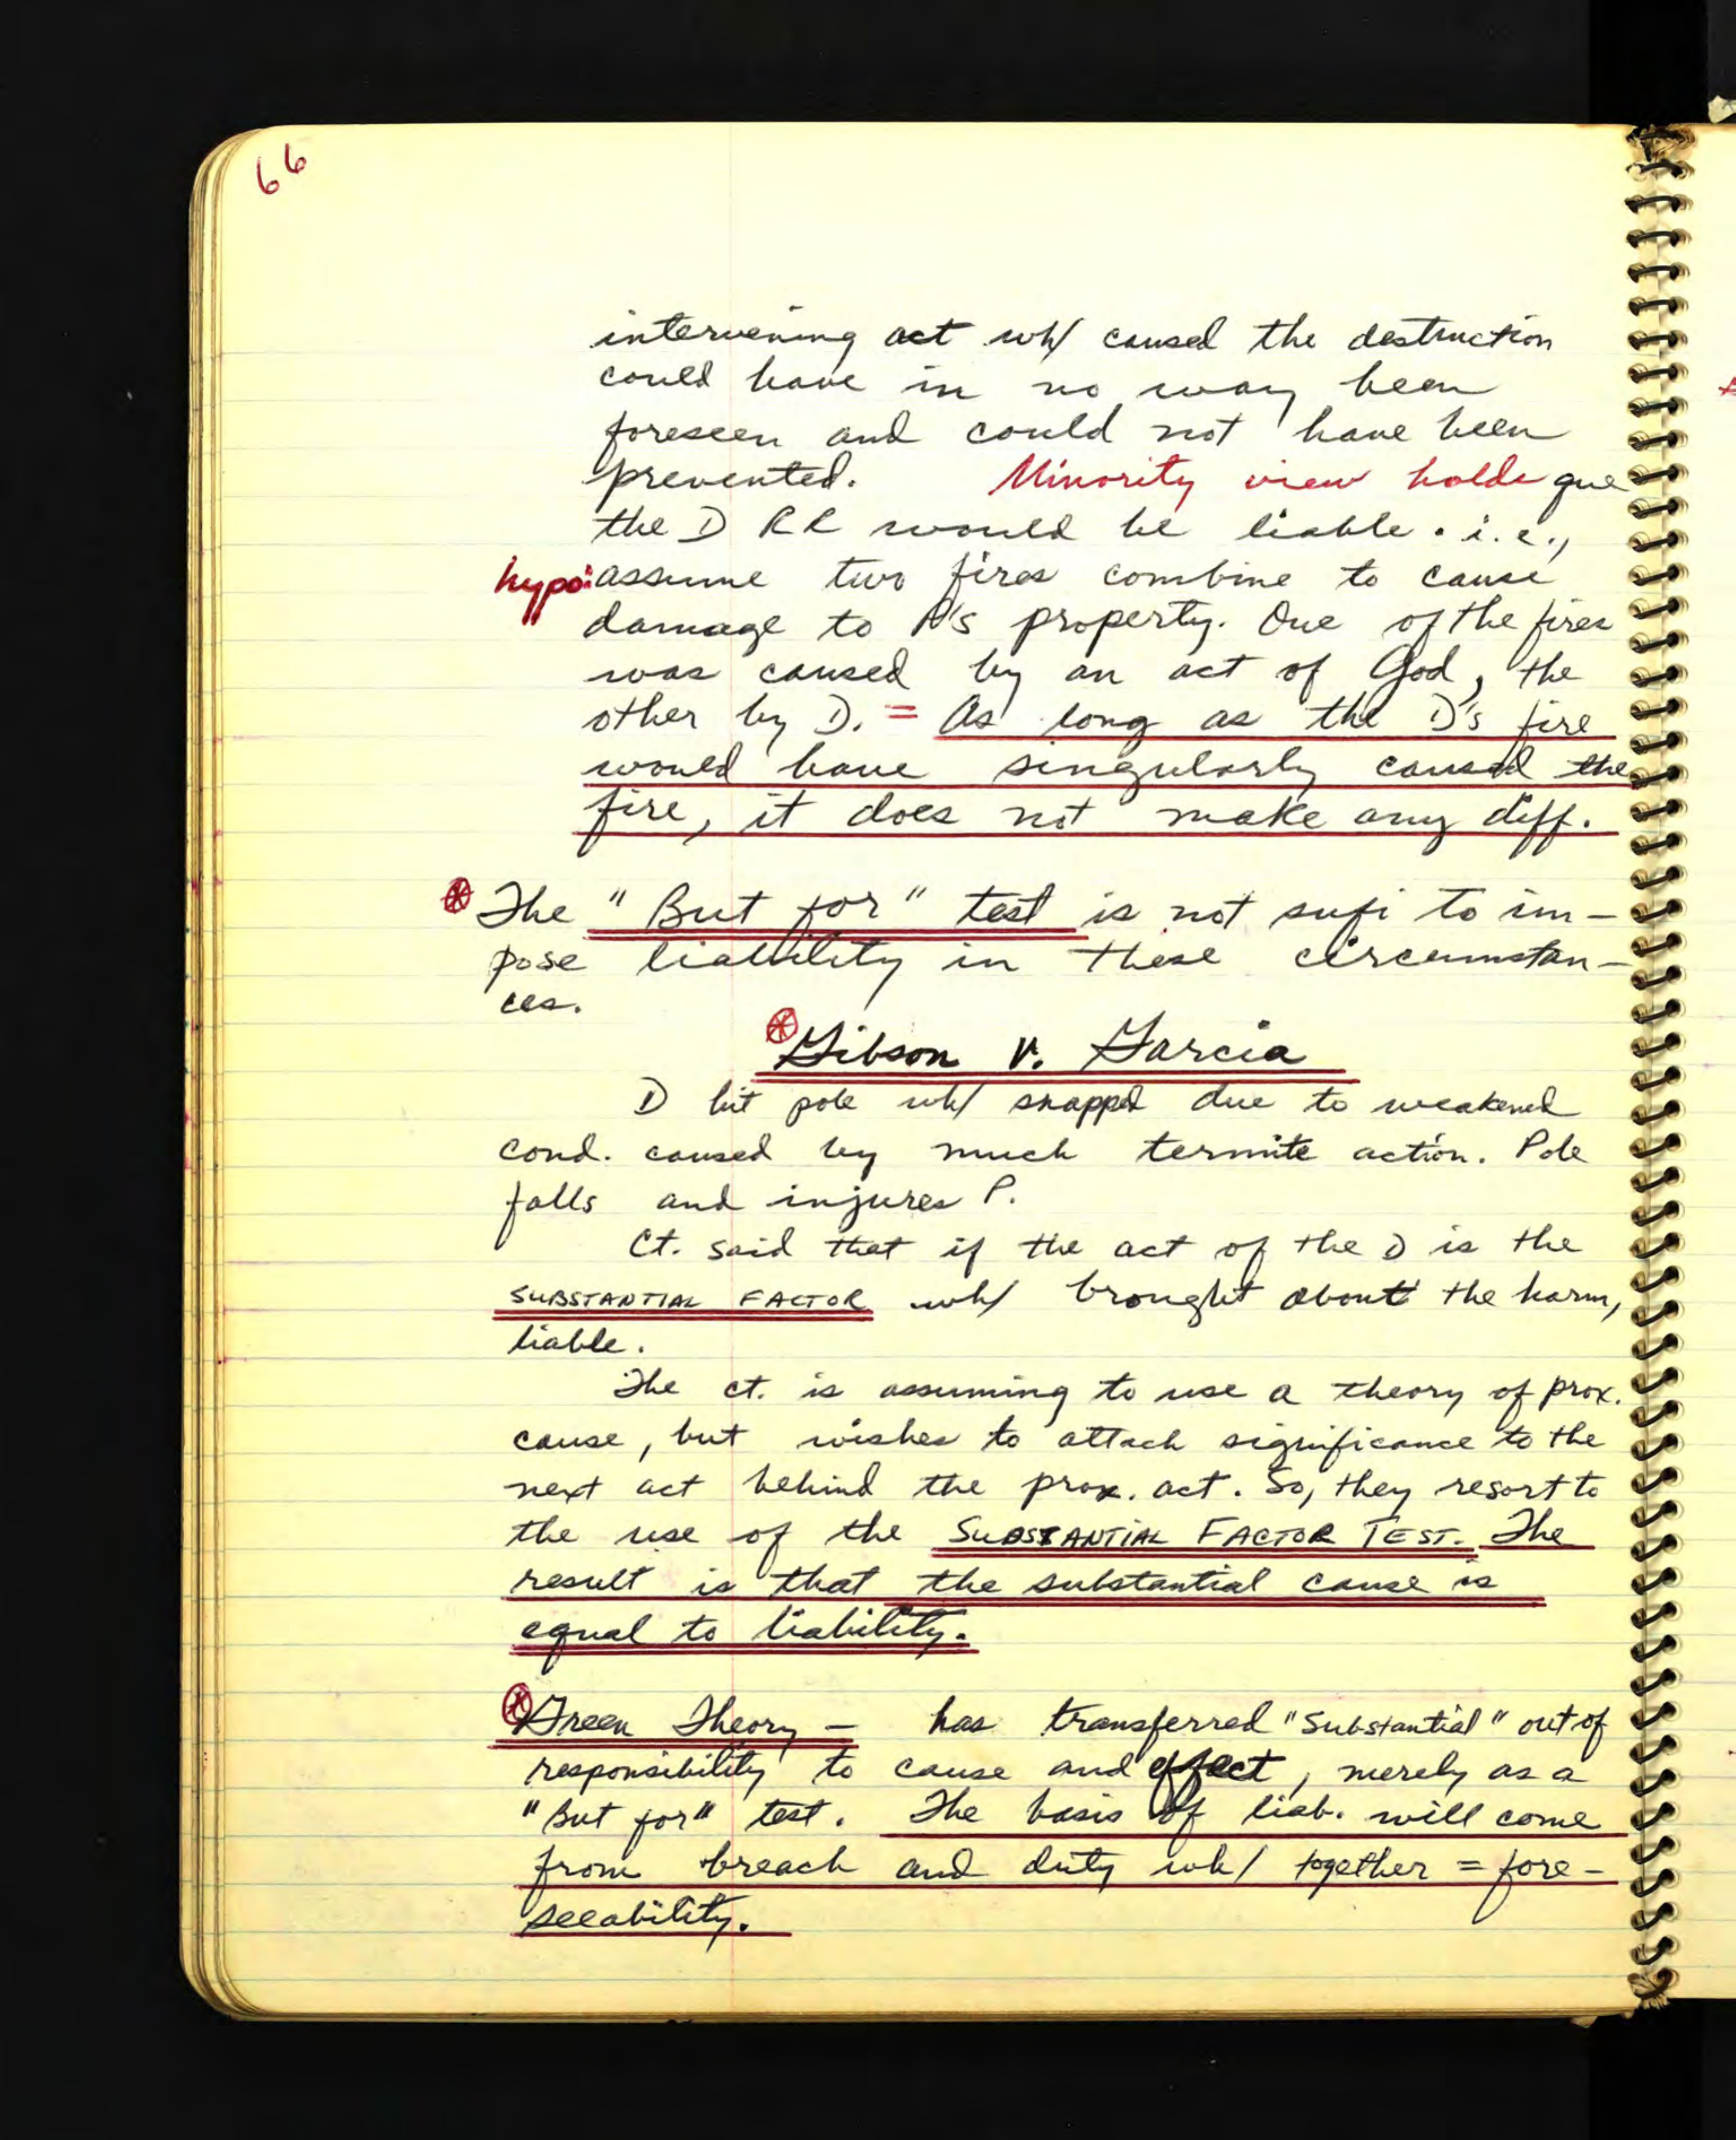 66
intervening act wh/ caused the destruction
could have in no way been
foreseen and could not have been
prevented. Minority view holds que
the D RR would be liable. i.e.,
hypo: assume two fires combine to cause
damage to P's property. One of the fires
was caused by an act of God, the
other by D. = As long as the D's fire
would have singularly caused the
fire, it does not make any diff.
The "But for" test is not sufi to im-
pose liability in these circumstan-
ces.
Gibson v. Garcia
D hit pole wh/ snapped due to weakened
cond. caused by much termite action. Pole
falls and injures P.
Ct. said that if the act of the D is the
SUBSTANTIAL FACTOR wh/ brought about the harm,
liable.
The ct. is assuming to use a theory of prox.
cause, but wishes to attach significance to the
next act behind the prox. act. So, they resort to
the use of the SUBSTANTIAL FACTOR TEST. The
result is that the substantial cause is
equal to liability.
Green Theory - has transferred "Substantial" out of
responsibility to cause and effect, merely as a
"But for" test. The basis of liab. will come
from breach and duty wh/ together = fore-
seeability.